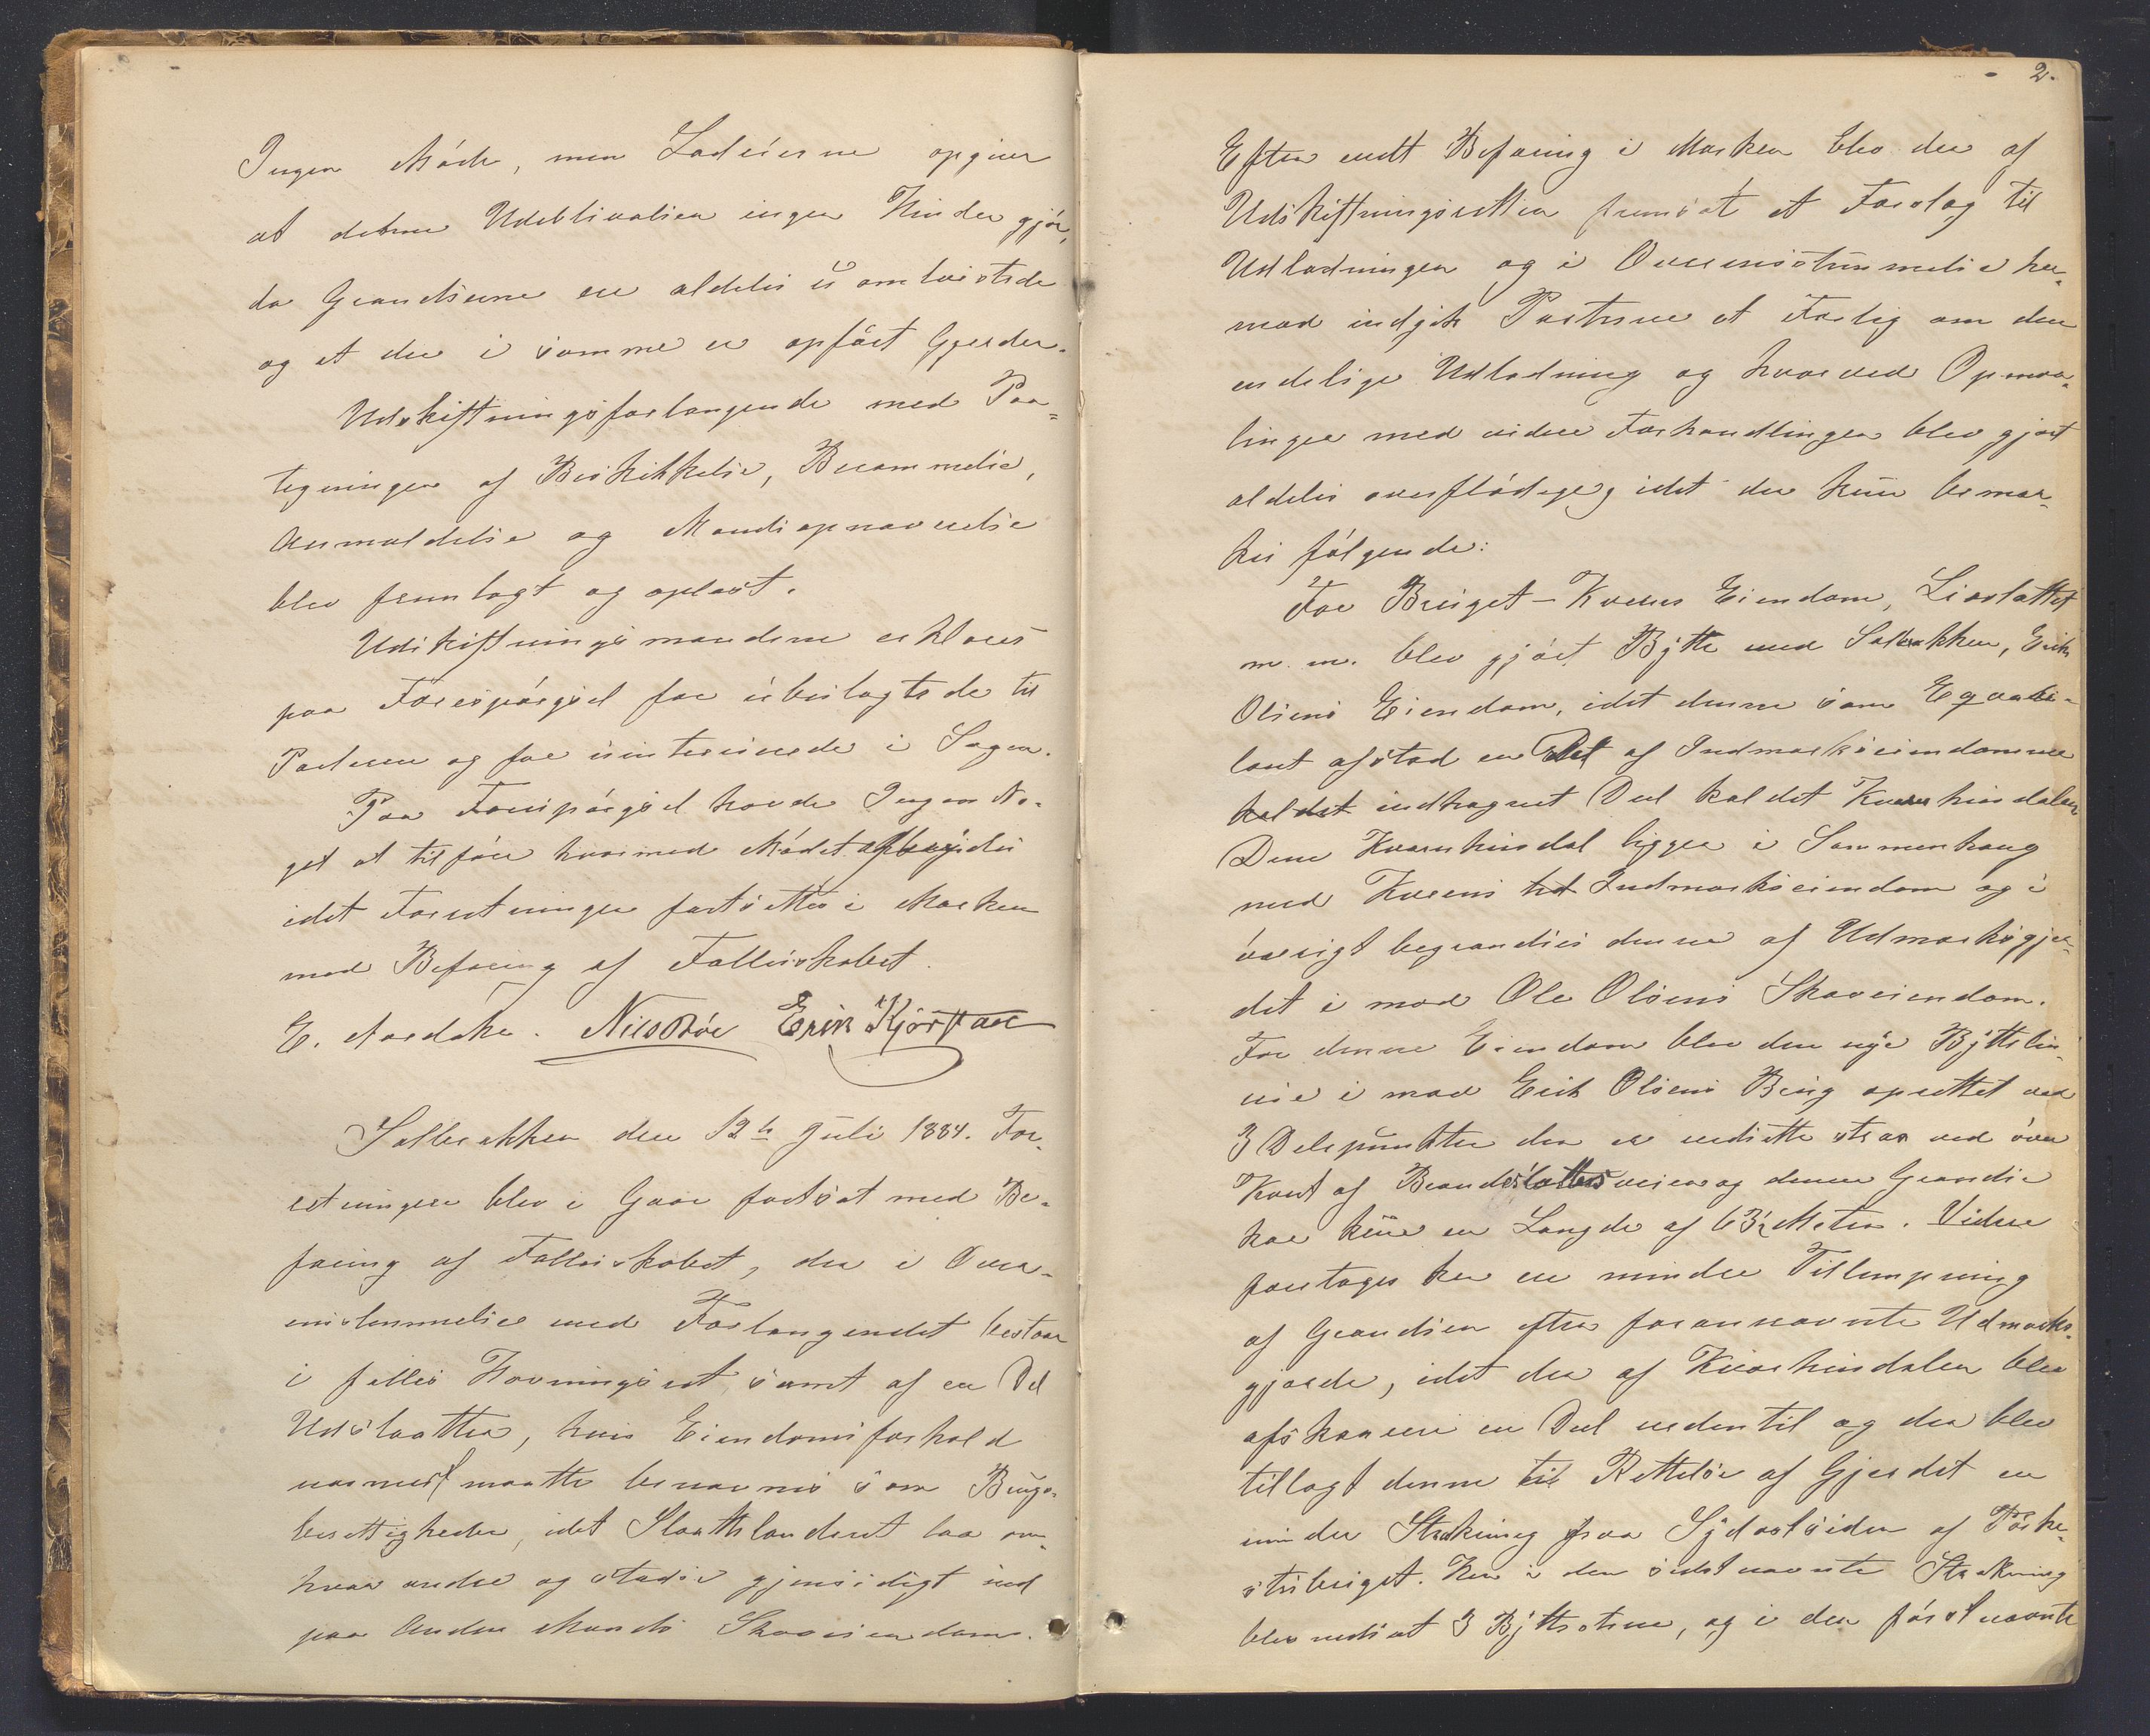 Ingen Møde, men Lodeierne opgiver
at denne Udeblivelsen ingen Hinder gjør,
da Grændserne er aldeles uomtvistede
og at der i samme er opført Gjerder.
Udskiftningsforlangende med Paa=
tegninger af Beskikkelse, Berammelse,
Anmeldelse og Mandsopnævnelse
blev fremlagt og oplæst.
Udskiftningsmændene erklæres
paa Forespørgsel for ubeslægtede til
Parterne og for uinteresserede i Sagen.
Paa Forespørgsel havde Ingen No-
get at tilføre hvormed Mødet afbrydes
idet Forretningen fortsættes i Marken
med Befaring af Fællesskabet.
E. Nordaker. Nils Bøe Erik Kjørstad
Solbrækken den 12te Juli 1884. For-
retningen blev i Gaar fortsat med Be-
faring af Fællesskabet, der i Over-
ensstemmelse med Forlangendet bestaar
i fælles Havningsret samt af en Del
Udslaatter, hvis Eiendomsforhold
nærmest maatte benævnes som Brugs-
berettigheder, idet Slaattelandet laa om
hver andre og stødte gjensidigt ind
paa Anden Mands Skoveiendom.
2.
Efter endt Befaring i Marken blev der af
Udskiftningsretten fremsat et Forslag til
Udlodningen og i Overensstemmelse her-
med indgik Parterne et Forlig om den
endelige Udlodning og hvorved Opmaa-
lingen med videre Forhandlinger blev gjort
aldeles overflødige, idet der kun bemær-
kes følgende:
For Bruget - Kverns Eiendom, Lisslættet
m. m. blev gjort Bytte med Solbrækken, Erik
Olsens Eiendom, idet denne som Eqvaliva-
lent afstod en Del af Indmarkseiendommene
kaldet indhegnet Del kaldet Kvernhusdalen
Denne Kvernhusdal ligger i Sammenhæng
med Kverns Indmarkseiendom og i
øvrigt begrændses denne af Udmarksgjer-
det i mod Ole Olsens Skoveiendom.
For denne Eiendom blev den nye Byttelin-
nie i mod Erik Olsens Brug oprettet ved
3 Delepunkter der er nedsatte strax ved øvre
Kant af Brandslættesveien og denne Grændse
har kun en Længde af 63½ Meter. Videre
foretages her en mindre Tillempning
af Grændsen efter forannævnte Udmarks-
gjærde, idet der af Kvernhusdalen blev
afskaaren en Del nedentil og der blev
tillagt denne til Rettelse af Gjerdet en
mindre Strækning fra Sydostsiden af
Her i den sidstnævnte Strækning
blev nedsat 3 Byttestene, og i den førstnævnte